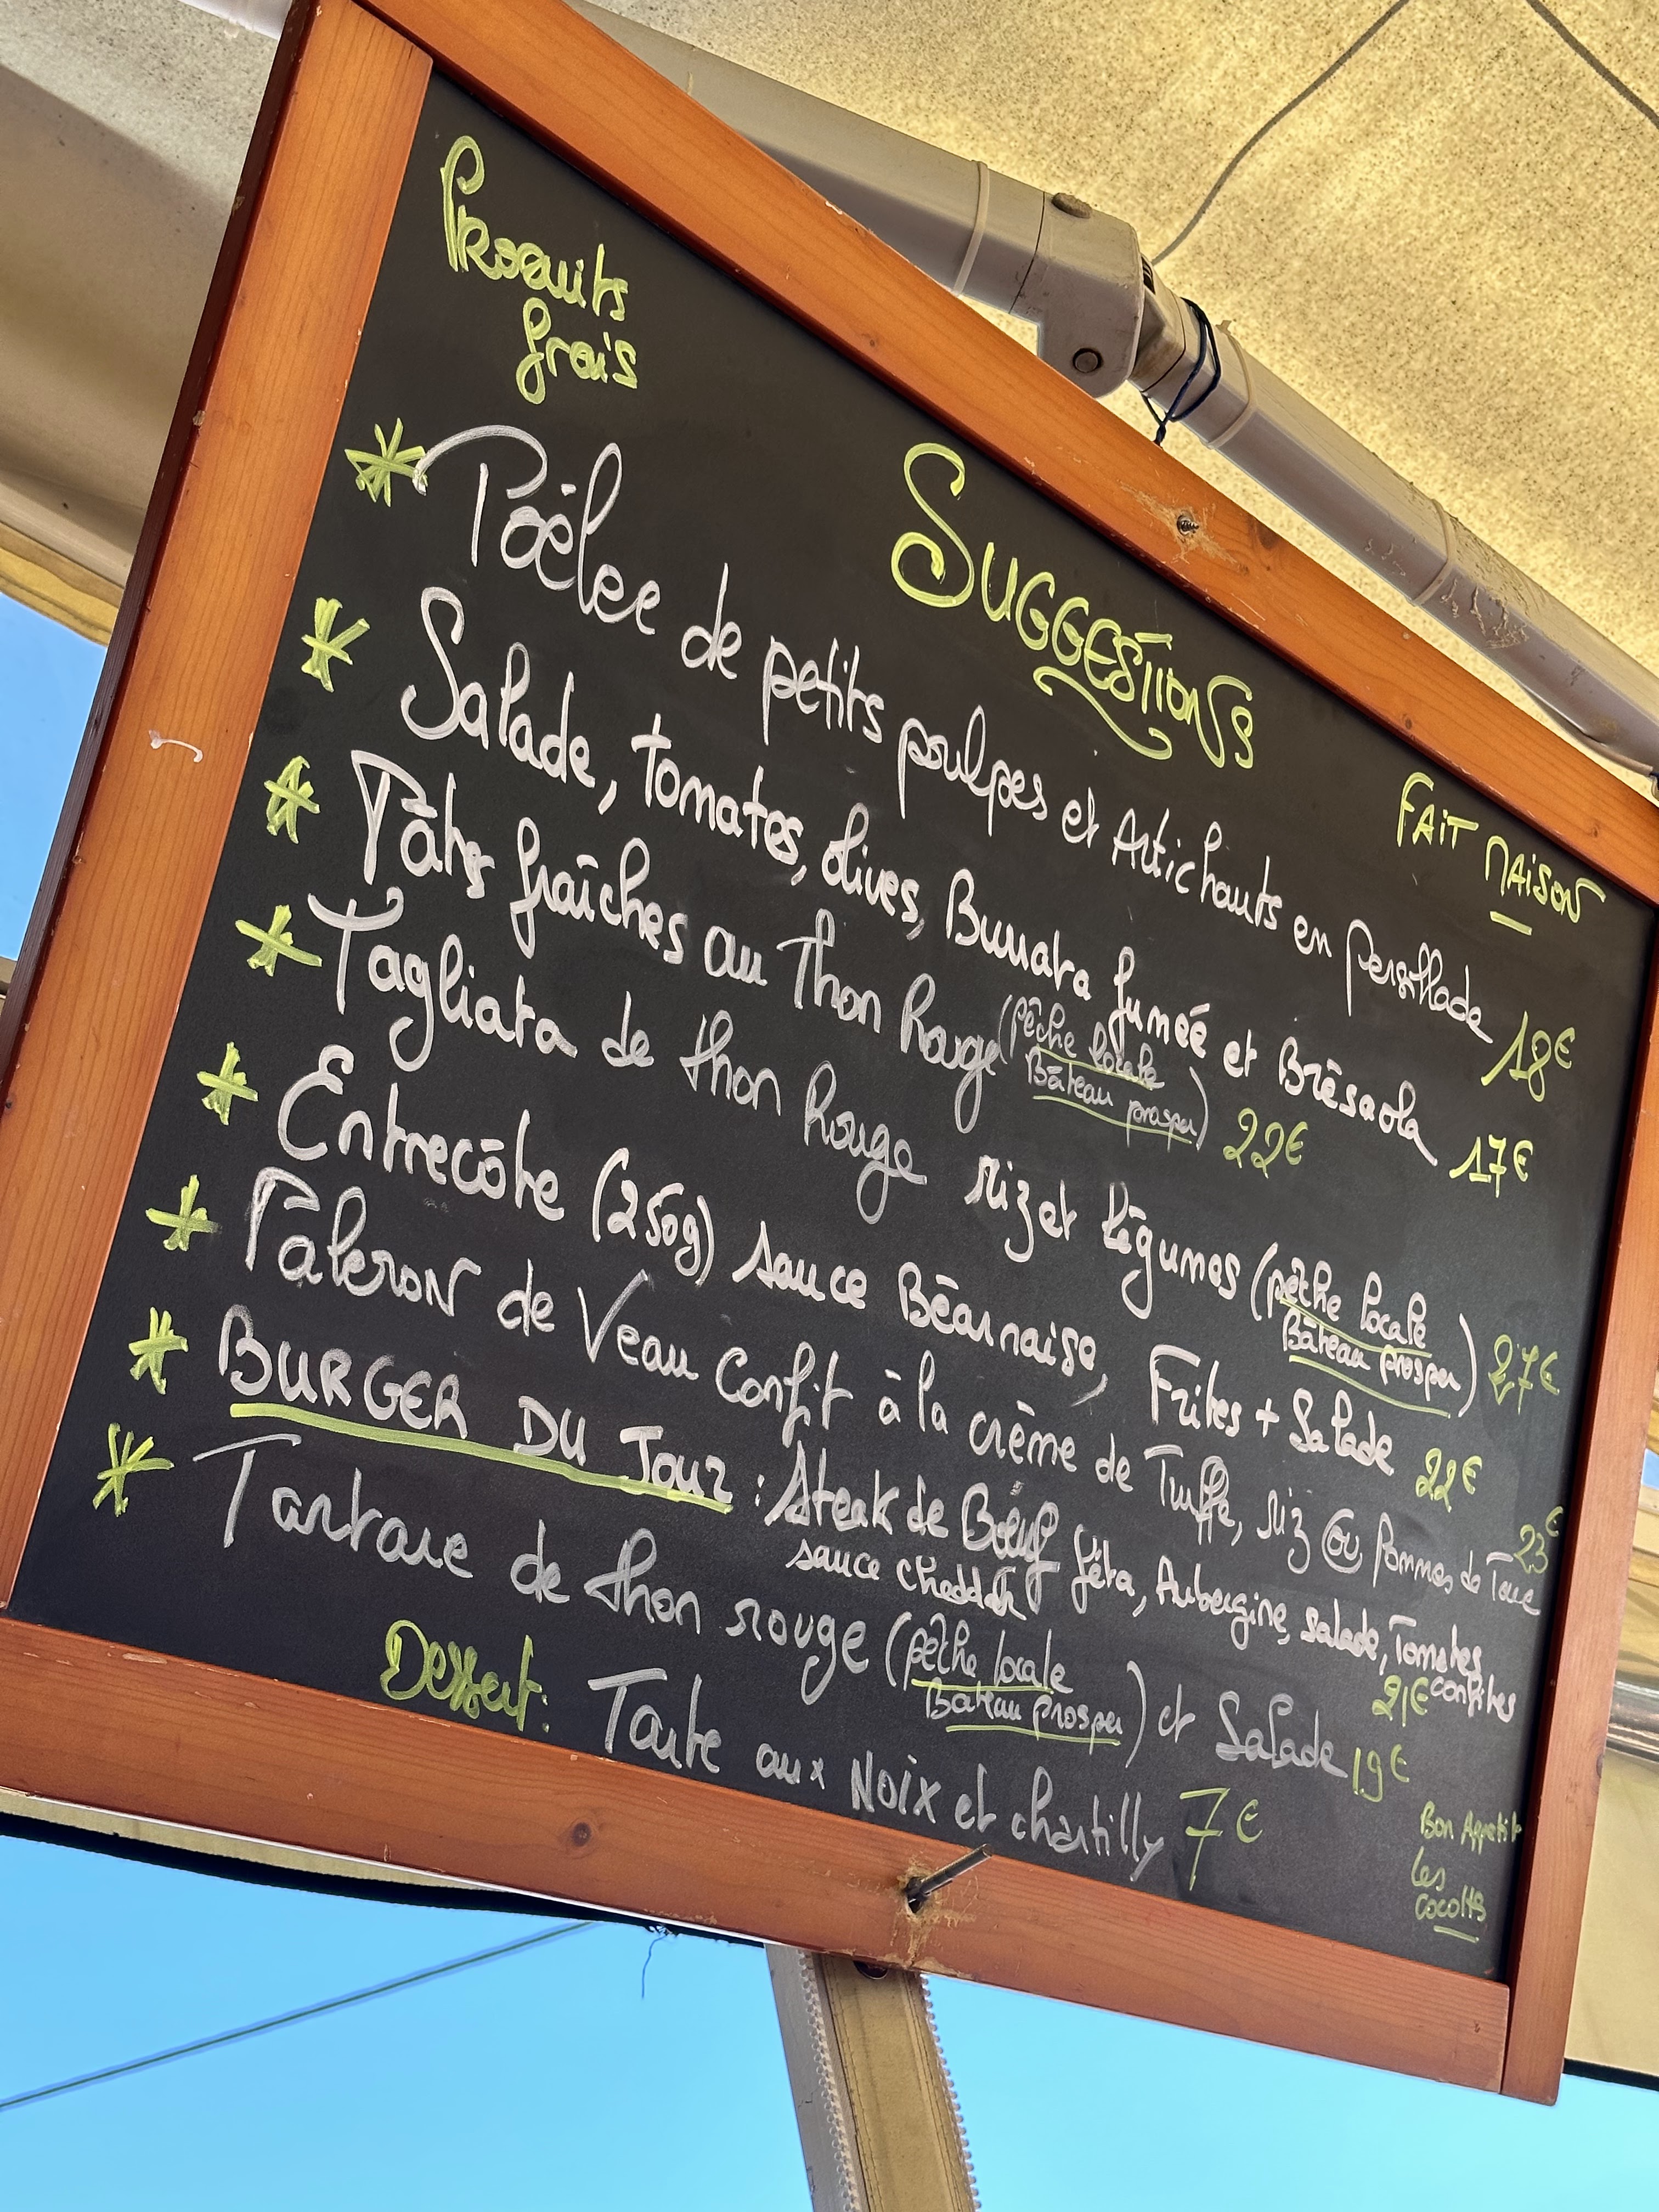 Produits
frais
SUGGESTIONS
FAIT MAISON
* Poêlee de petits poulpes et Artichauts en persillade 18€
* Salade, tomates, olives, Burrata fumée et Brésaola 17€
* Pâtes fraîches au Thon Rouge (pêche locale
Bâteau prosper) 22€
* Tagliata de thon Rouge riz et légumes (pêche locale
Bâteau prosper) 27€
* Entrecôte (250g) sauce Béarnaise, Frites + Salade 22€
* Paleron de Veau Confit à la crème de Truffe, riz ou pommes de Terre 23€
* BURGER DU JOUR : Steak de Bœuf féta, Aubergine, salade, Tomates
sauce cheddar
confites
21€
* Tartare de thon rouge (pêche locale
Bateau prosper) et Salade 19€
Dessert: Tarte aux Noix et chantilly 7€
Bon Appétit
les
cocottes